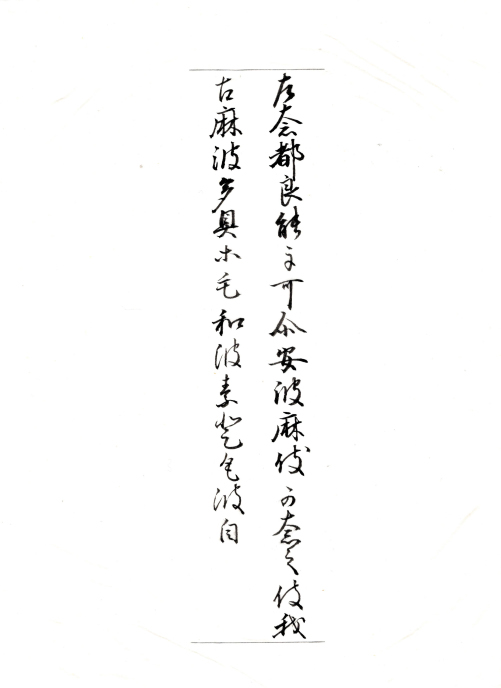 左奈都良能乎可尓安波麻伎可奈之伎我
古麻波多具等毛和波素登毛波自